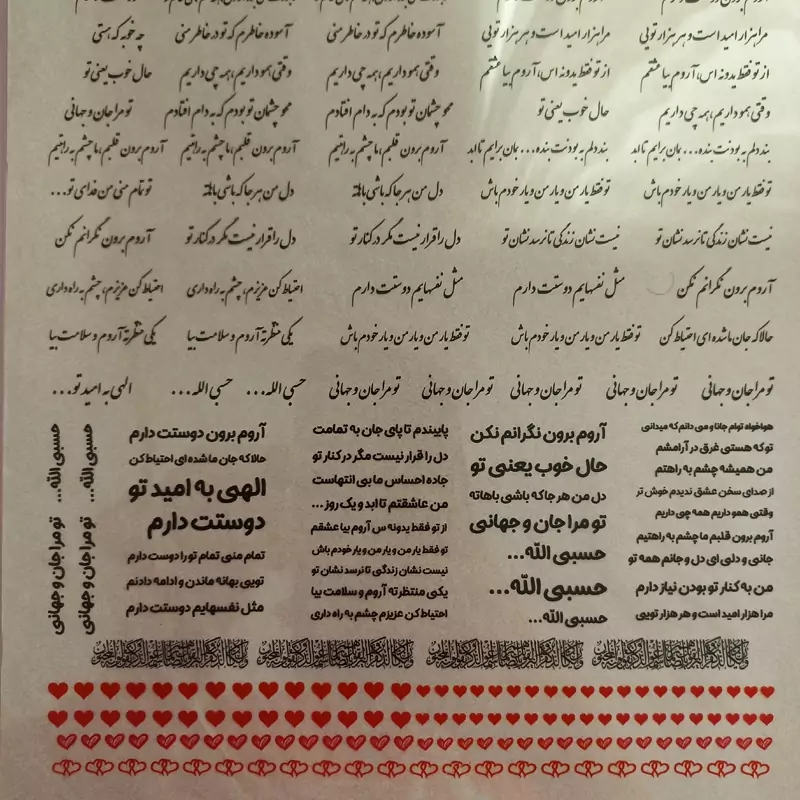 مرا هزار امید است و هر هزار تویی
مرا هزار امید است و هر هزار تویی
آسوده خاطرم که تو در خاطر منی
آسوده خاطرم که تو در خاطر منی
چه خوبه که هستی
از تو فقط یدونه اس، آروم بیا عشقم
از تو فقط یدونه اس، آروم بیا عشقم
وقتی همو داریم، همه چی داریم
وقتی همو داریم، همه چی داریم
حال خوب یعنی تو
وقتی همو داریم، همه چی داریم
حال خوب یعنی تو
محو چشمان تو بودم که به دام افتادم
محو چشمان تو بودم که به دام افتادم
تو مرا جان و جهانی
بند دلم به بودنت بنده... بمان برایم تا ابد
بند دلم به بودنت بنده... بمان برایم تا ابد
آروم برون قلبم، ما چشم به راتیم
آروم برون قلبم، ما چشم به راتیم
آروم برون قلبم، ما چشم به راتیم
تو فقط یار من و یار من و یار خودم باش
تو فقط یار من و یار من و یار خودم باش
دل من هر جا که باشی باهاته
دل من هر جا که باشی باهاته
تو تمام منی من فدای تو...
نیست نشان زندگی تا نرسد نشان تو
نیست نشان زندگی تا نرسد نشان تو
دل را قرار نیست مگر در کنار تو
دل را قرار نیست مگر در کنار تو
آروم برون نگرانم نکن
آروم برون نگرانم نکن
مثل نفسهایم دوستت دارم
مثل نفسهایم دوستت دارم
احتیاط کن عزیزم، چشم به راه داری
احتیاط کن عزیزم، چشم به راه داری
حالا که جان ما شده ای احتیاط کن
تو فقط یار من و یار من و یار خودم باش
تو فقط یار من و یار من و یار خودم باش
یکی منتظرته آروم و سلامت بیا
یکی منتظرته آروم و سلامت بیا
تو مرا جان و جهانی
تو مرا جان و جهانی
تو مرا جان و جهانی
تو مرا جان و جهانی
تو مرا جان و جهانی
حسبی الله...
حسبی الله...
الهی به امید تو...
هواخواه توام جانا و می دانم که میدانی
تو که هستی غرق در آرامشم
من همیشه چشم به راهتم
از صدای سخن عشق ندیدم خوش تر
وقتی همو داریم همه چی داریم
آروم برون قلبم ما چشم به راهتیم
جانی و دلی ای دل و جانم همه تو
من به کنار تو بودن نیاز دارم
مرا هزار امید است و هر هزار تویی
آروم برون نگرانم نکن
حال خوب یعنی تو
دل من هر جا که باشی باهاته
تو مرا جان و جهانی
حسبی الله...
حسبی الله...
حسبی الله...
پایبندم تا پای جان به تمامت
دل را قرار نیست مگر در کنار تو
جاده احساس ما بی انتهاست
من عاشقتم تا ابد و یک روز ...
از تو فقط یدونه س آروم بیا عشقم
تو فقط یار من و یار من و یار خودم باش
نیست نشان زندگی تا نرسد نشان تو
یکی منتظرته آروم و سلامت بیا
احتیاط کن عزیزم چشم به راه داری
آروم برون دوستت دارم
حالا که جان ما شده ای احتیاط کن
الهی به امید تو
دوستت دارم
تمام منی تمام تو را دوست دارم
تویی بهانه ماندن و ادامه دادنم
مثل نفسهایم دوستت دارم
حسبی الله...
تو مرا جان و جهانی
حسبی الله...
تو مرا جان و جهانی